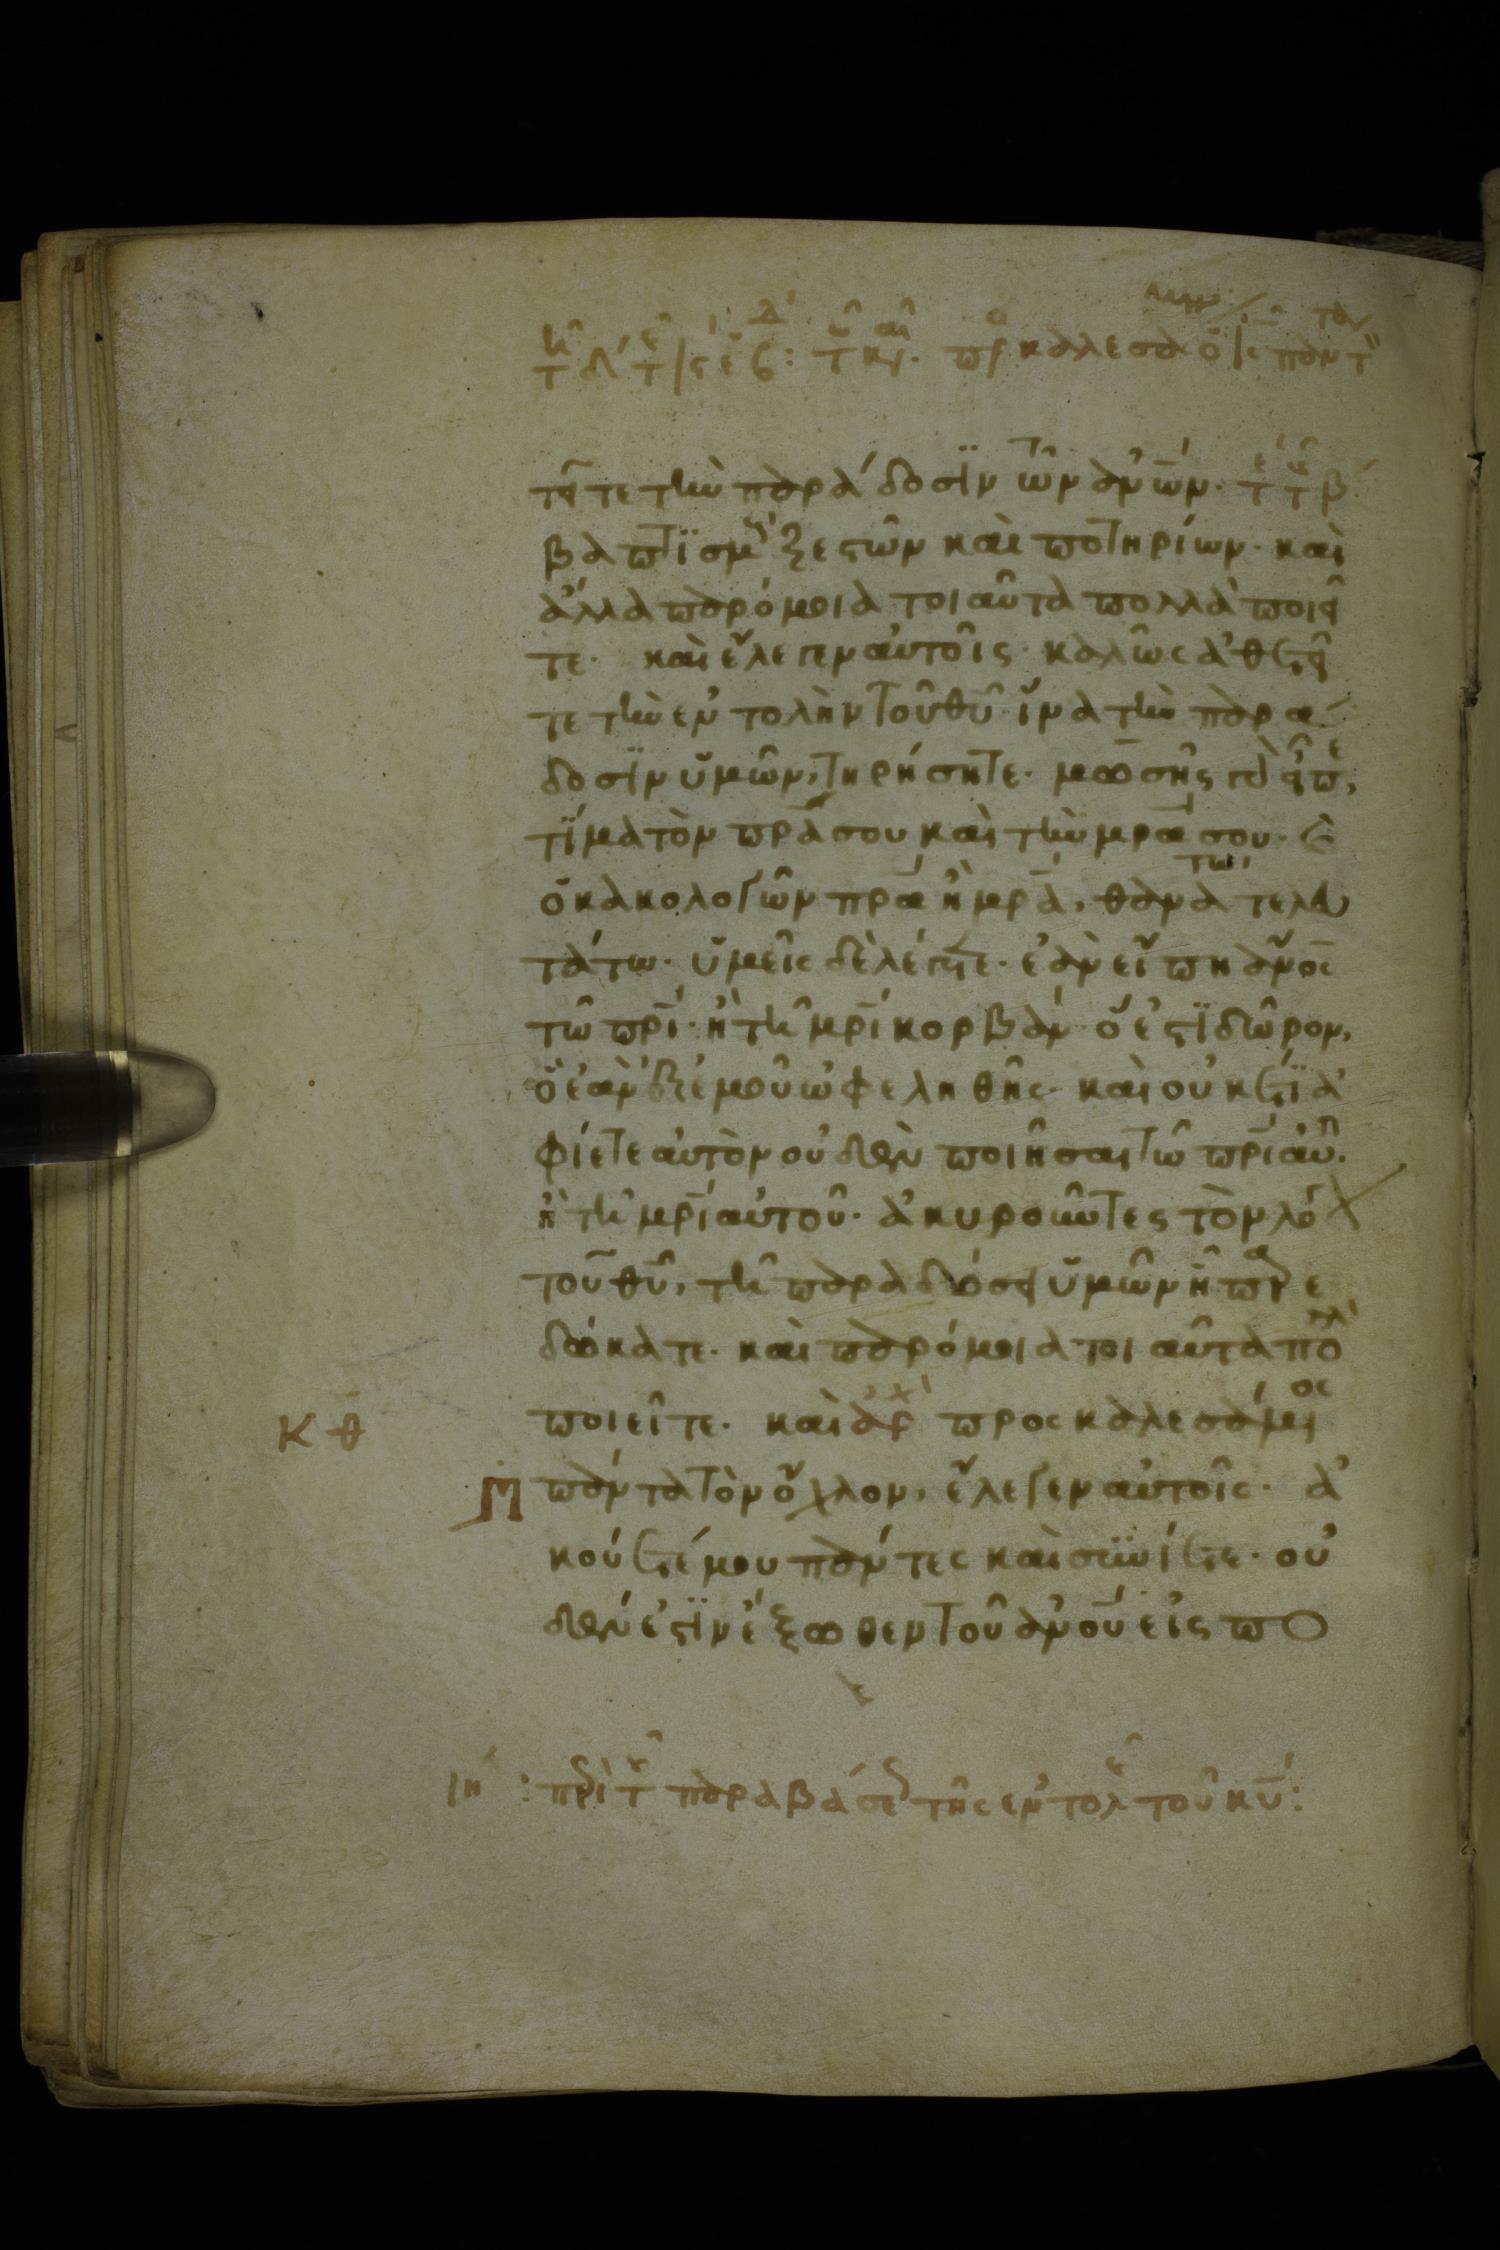 τεῖτε τὴν παράδοσϊν τῶν ἀν̅ω̅ν·
βαπτϊσμοὺς ξεστῶν καὶ ποτηρίων· καὶ
ἄλλα παρόμοια τοιαῦτα πολλὰ ποιεῖ
τε· καὶ ἔλεγεν αὐτοῖς· καλῶς ἀθετεῖ
τε τὴν ἐντολὴν τοῦ θ̅υ̅· ἵνα τὴν παρά
δοσϊν ὑμῶν, τηρήσητε· μωσῆς γὰρ εἶπε,
τίμα τὸν π̅ρ̅α̅ σου καὶ τὴν μ̅ρ̅α̅ σου· καὶ
ὁ κακολογῶν π̅ρ̅α̅ ἢ μ̅ρ̅α̅, θανάτω τελευ
τάτω· ὑμεῖς δὲ λέγετε· ἐὰν εἴπη ἄν̅ο̅ς̅
τῶ π̅ρ̅ι̅· ἢ τῆ μ̅ρ̅ι̅ κορβάν· ὅ ἐστϊ δῶρον,
ὃ ἐὰν ἐξ ἐμοῦ ὠφεληθῆς· καὶ οὐκέτϊ ἀ
φίετε αὐτὸν οὐδὲν ποιῆσαι τῶ π̅ρ̅ι̅ αὐτοῦ·
ἢ τῆ μ̅ρ̅ι̅ αὐτοῦ· ἀκυροῦντες τὸν λόγον
τοῦ θ̅υ̅, τῆ παραδόσει ὑμῶν ἧ παρε
δώκατε· καὶ παρόμοια τοιαῦτα πολλὰ
ποιεῖτε· καὶ ἀρχ προσκαλεσάμενος
Κθ
πάντα τὸν ὄχλον, ἔλεγεν αὐτοῖς· ἀ
κούετέ μου πάντες καὶ συνίετε· οὐ
δέν ἐστϊν ἔξωθεν τοῦ ἀν̅ο̅υ̅ εἰσπο
ιη : περὶ τῆς παραβάσεως τῆς ἐντολῆς τοῦ κ̅υ̅: